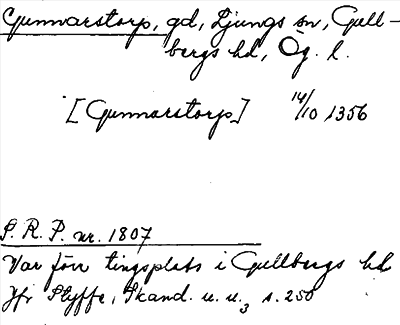 Gunnarstorp, gd, Ljungs sn, Gull-
bergs hd, Ög. l.
[Gunnarstorp] 14/10 1356
S. R. P. nr. 1807
Var förr tingsplats i Gullbergs hd
Jfr Styffe, Skand. u. u.3 s. 250